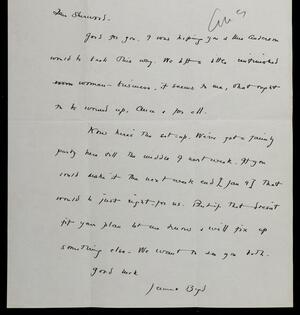 Dear Sherwood -
Good for you. I was hoping you & Mrs Anderson
would be back this way. We left a little unfinished
woman - business, it seems to me, that ought
to be wound up, once & for all.
Now here's the set-up. We've got a family
party here till the middle of next week. If you
could make it the next week end [Jan 9] that
would be just right for us. But if that doesn't
fit your plans let me know & we'll fix up
something else - We want to see you both.
Good luck
James Boyd